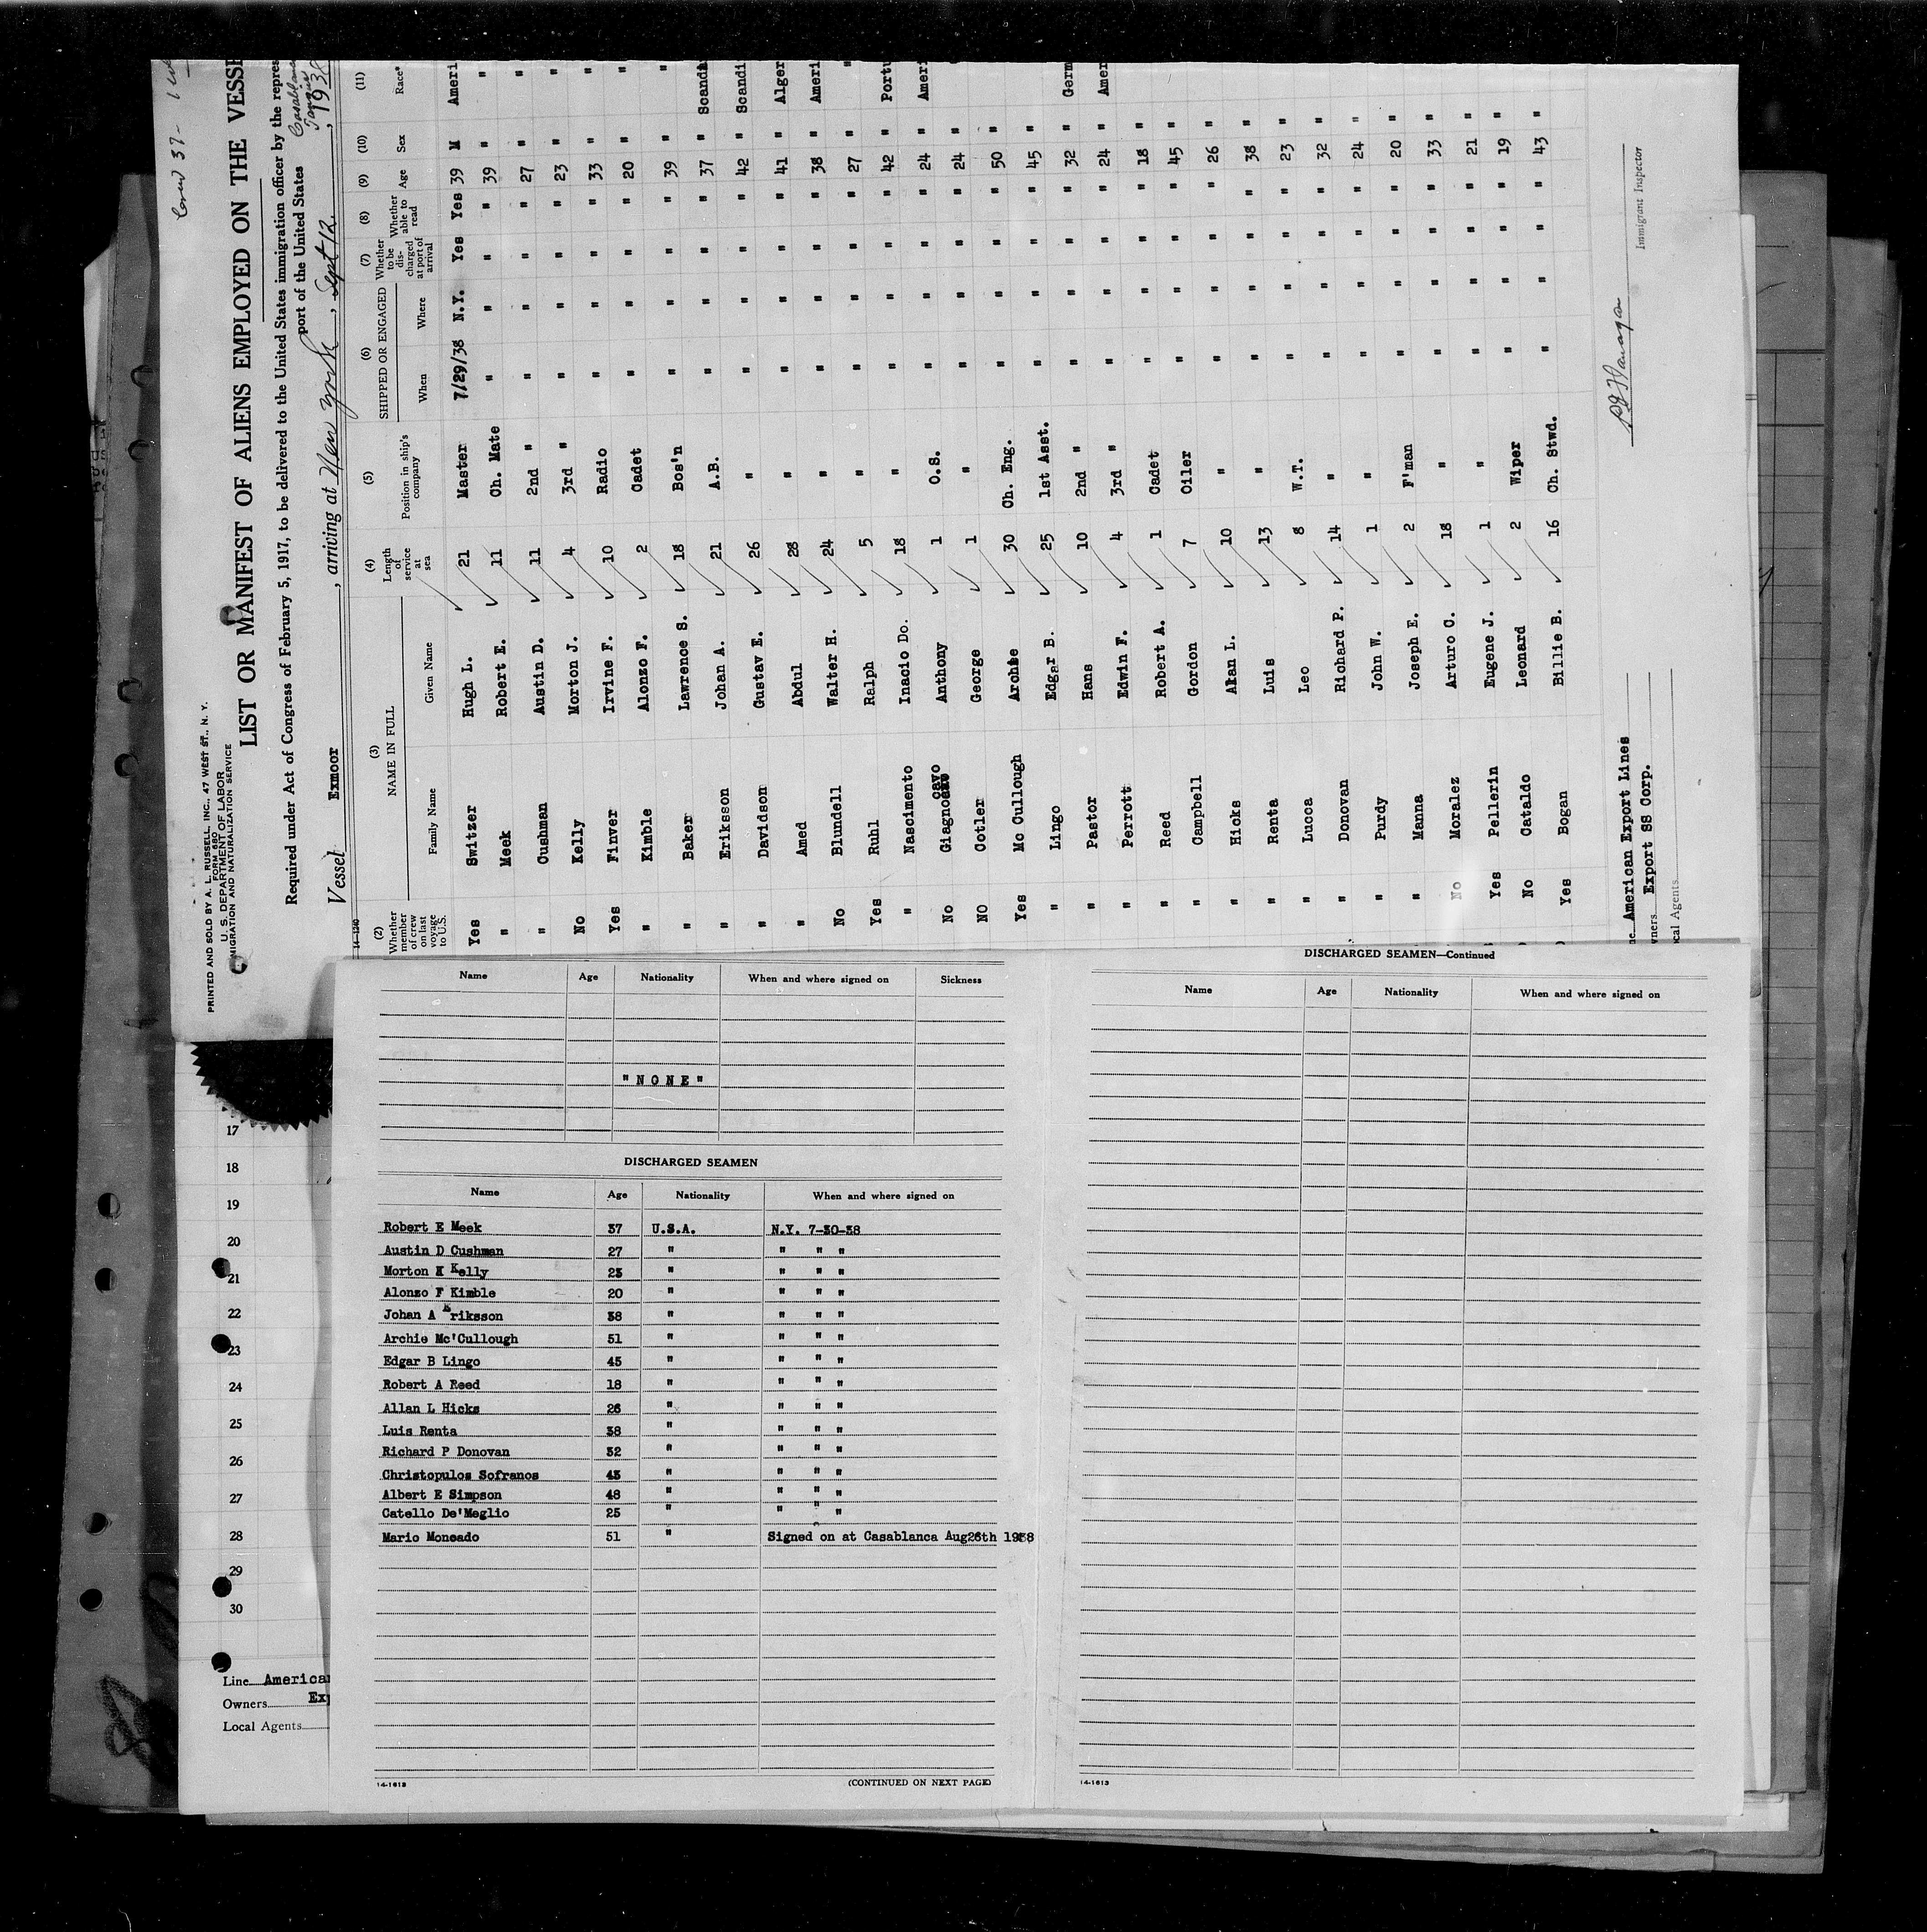 PRINTED AND SOLD BY A. L. RUSSELL, INC., 47 WEST ST., N. Y.
FORM 680
U. S. DEPARTMENT OF LABOR
IMMIGRATION AND NATURALIZATION SERVICE
LIST OR MANIFEST OF ALIENS EMPLOYED ON THE VESSE
Required under Act of Congress of February 5, 1917, to be delivered to the United States immigration officer by the repres
port of the United States
Casablanca
Tangier
Vessel Exmoor, arriving at New York, Sept 12, 1938
(2) (3) (4) (5) (6) (7) (8) (9) (10) (11)
Whether member of crew on last voyage to U.S. NAME IN FULL Family Name Given Name Length of service at sea Position in ship's company SHIPPED OR ENGAGED When Where Whether to be discharged at port of arrival Whether able to read Age Sex Race*
Yes Switzer Hugh L. 21 Master 7/29/38 N.Y. Yes Yes 39 M Ameri
" Meek Robert E. 11 Ch. Mate " " " " 39 " "
" Cushman Austin D. 11 2nd " " " " " 27 " "
No Kelly Morton J. 4 3rd " " " " " 23 " "
Yes Finver Irvine F. 10 Radio " " " " 33 " "
" Kimble Alonzo F. 2 Cadet " " " " 20 " "
" Baker Lawrence S. 18 Bos'n " " " " 39 " "
" Eriksson Johan A. 21 A.B. " " " " 37 " Scandi
" Davidson Gustav E. 26 " " " " " 42 " Scandi
" Amed Abdul 28 " " " " " 41 " Alger
No Blundell Walter H. 24 " " " " " 38 " Ameri
Yes Ruhl Ralph 5 " " " " " 27 " "
" Nascimento Inacio Do. 18 " " " " " 42 " Portu
No Giagnocavo Anthony 1 O.S. " " " " 24 " Ameri
NO Cotler George 1 " " " " " 24 "
Yes Mc Cullough Archie 30 Ch. Eng. " " " " 50 "
" Lingo Edgar B. 25 1st Asst. " " " " 45 "
" Pastor Hans 10 2nd " " " " " 32 " Germ
" Perrott Edwin F. 4 3rd " " " " " 24 " Amer
" Reed Robert A. 1 Cadet " " " " 18 "
" Campbell Gordon 7 Oiler " " " " 45 "
" Hicks Alan L. 10 " " " " " 26 "
" Renta Luis 13 " " " " " 38 "
" Lucca Leo 8 W.T. " " " " 23 "
" Donovan Richard P. 14 " " " " " 32 "
" Purdy John W. 1 " " " " " 24 "
" Manna Joseph E. 2 F'man " " " " 20 "
No Moralez Arturo C. 18 " " " " " 33 "
Yes Pellerin Eugene J. 1 " " " " " 21 "
No Cataldo Leonard 2 Wiper " " " " 19 "
Yes Bogan Billie B. 16 Ch. Stwd. " " " " 43 "
ne American Export Lines
wners Export SS Corp.
cal Agents
Immigrant Inspector
Name Age Nationality When and where signed on Sickness
"NONE"
DISCHARGED SEAMEN
Name Age Nationality When and where signed on
Robert E Meek 37 U.S.A. N.Y. 7-30-38
Austin D Cushman 27 " " " "
Morton K Kelly 23 " " " "
Alonzo F Kimble 20 " " " "
Johan A Eriksson 38 " " " "
Archie Mc'Cullough 51 " " " "
Edgar B Lingo 45 " " " "
Robert A Reed 18 " " " "
Allan L Hicks 26 " " " "
Luis Renta 38 " " " "
Richard P Donovan 32 " " " "
Christopulos Sofranos 43 " " " "
Albert E Simpson 48 " " " "
Catello De'Meglio 25 " " " "
Mario Moncado 51 " Signed on at Casablanca Aug26th 1938
14-1613 (CONTINUED ON NEXT PAGE)
DISCHARGED SEAMEN—Continued
Name Age Nationality When and where signed on
14-1613
17
18
19
20
21
22
23
24
25
26
27
28
29
30
Line American
Owners Exp
Local Agents